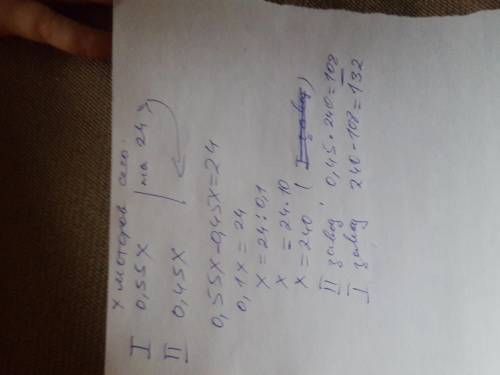 х моторов сего.
I 0,55х | на 24 >
II 0,45х
0,55х-0,45х=24
0,1х = 24
х = 24:0,1
х = 24·10
х = 240 (
II завод: 0,45·240=108
I завод 240-108=132